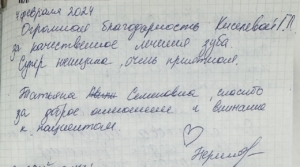 4 февраля 2024
Огромная благодарность Киселевой Г.П.
за качественное лечение зуба.
Супер женщина, очень приятная.
Татьяна Семеновна спасибо
за доброе отношение и внимание
к пациентам.